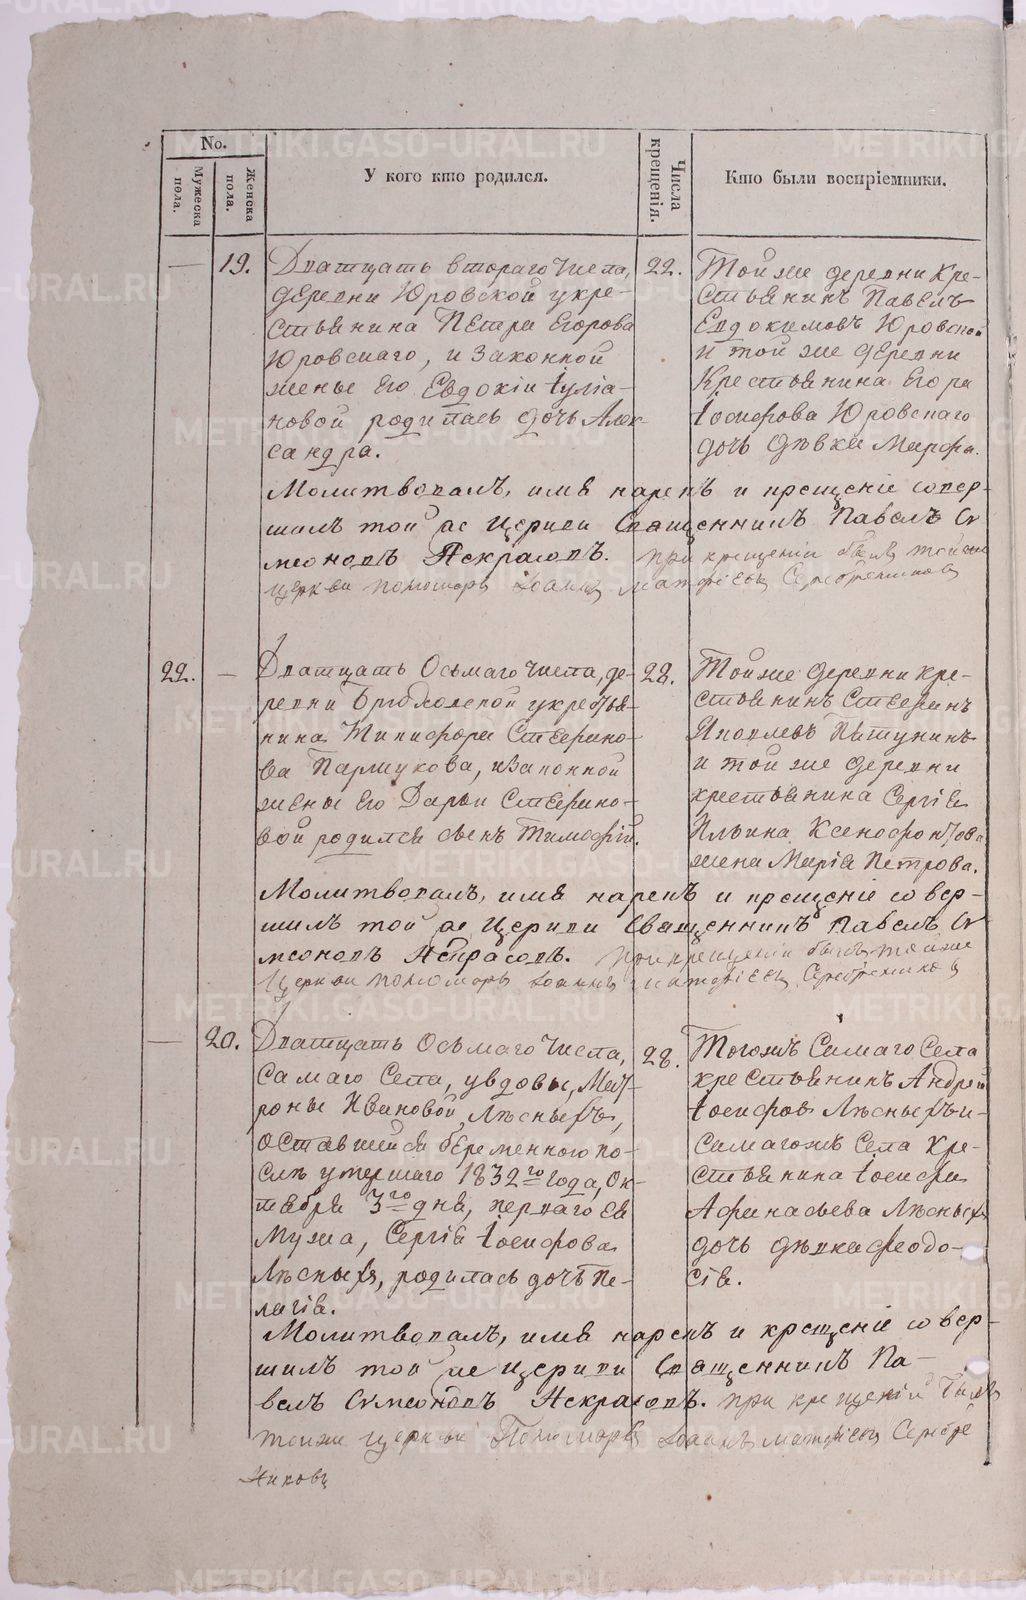 No.
Мужеска пола.
Женска пола.
У кого кто родился.
Числа крещенія.
Кто были воспріемники.
19.
Дватцать втораго числа,
деревни Юровской у кре-
стьянина Петра Егорова
Юровскаго, и законной
жены его Евдокіи Іулiа-
новой родилась дочь Алек-
сандра.
22.
Той же деревни кре-
стьянинъ Павелъ
Евдокимовъ Юровской
и той же деревни
крестьянина Егора
Іосифова Юровскаго
дочь девка Марфа.
Молитвовалъ, имя нарекъ и крещеніе совер-
шилъ той же церкви Священникъ Павелъ Си
меоновъ Некрасовъ. при крещеніи былъ тойже
церкви пономарь Іоаннъ Матфіевъ Серебрениковъ
22.
Дватцать осьмаго числа, де-
ревни у крестья-
нина Никифора Стефано-
ва Пармукова, и законной
жены его Дарьи Стефано-
вой родился сынъ Тимофей.
28.
Той же деревни кре-
стьянинъ Стефанъ
Яковлевъ Пятунинъ
и той же деревни
крестьянина Сергія
Ильина Ксенофонтова
жена Марія Петрова.
Молитвовалъ, имя нарекъ и крещеніе совер-
шилъ той же церкви Священникъ Павелъ Си
меоновъ Некрасовъ. при крещеніи былъ тойже
церкви пономарь Іоаннъ Матфіевъ Серебрениковъ
20.
Дватцать осьмаго числа,
самаго села, у вдовы, Мат-
роны Ивановой Лѣсныхъ,
оставшейся беременною по-
слѣ умершаго 1832го года, Ок-
тября 3го дня, перваго ея
мужа, Сергія Іосифова
Лѣсныхъ, родилась дочь Пе-
лагія.
28.
Тогожъ самаго села
крестьянинъ Андрей
Іосифовъ Лѣсныхъ и
самагожъ села кре-
стьянина Іосифа
Афанасьева Лѣсныхъ
дочь девка Феодо-
сія.
Молитвовалъ, имя нарекъ и крещеніе совер-
шилъ той же церкви Священникъ Па-
велъ Симеоновъ Некрасовъ. при крещеніи былъ
тойже церкви Пономарь Іоаннъ Матфіевъ Серебре
никовъ
METRIKI.GASO-URAL.RU